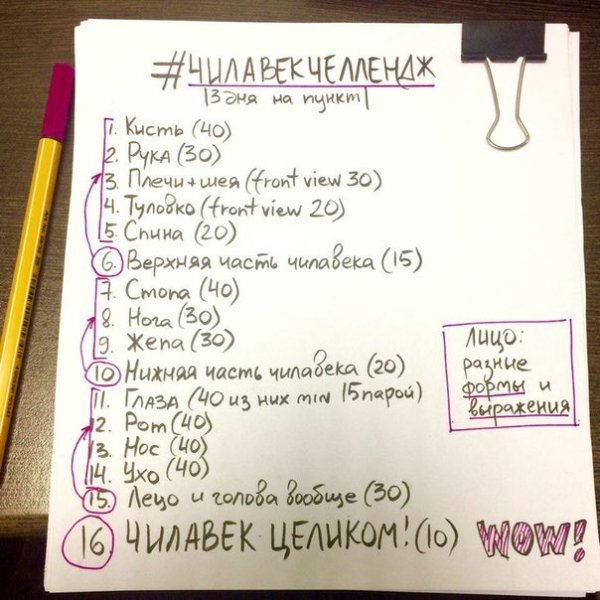 #ЧИЛАВЕКЧЕЛЛЕНДЖ
|3 дня на пункт|
1. Кисть (40)
2. Рука (30)
3. Плечи+шея (front view 30)
4. Туловко (front view 20)
5. Спина (20)
6. Верхняя часть чилавека (15)
7. Стопа (40)
8. Нога (30)
9. Жепа (30)
10. Нижняя часть чилавека (20)
11. Глаза (40 из них min 15 парой)
12. Рот (40)
13. Нос (40)
14. Ухо (40)
15. Лецо и голова вообще (30)
16 ЧИЛАВЕК ЦЕЛИКОМ! (10) WOW!
Лицо:
разные
формы и
выражения